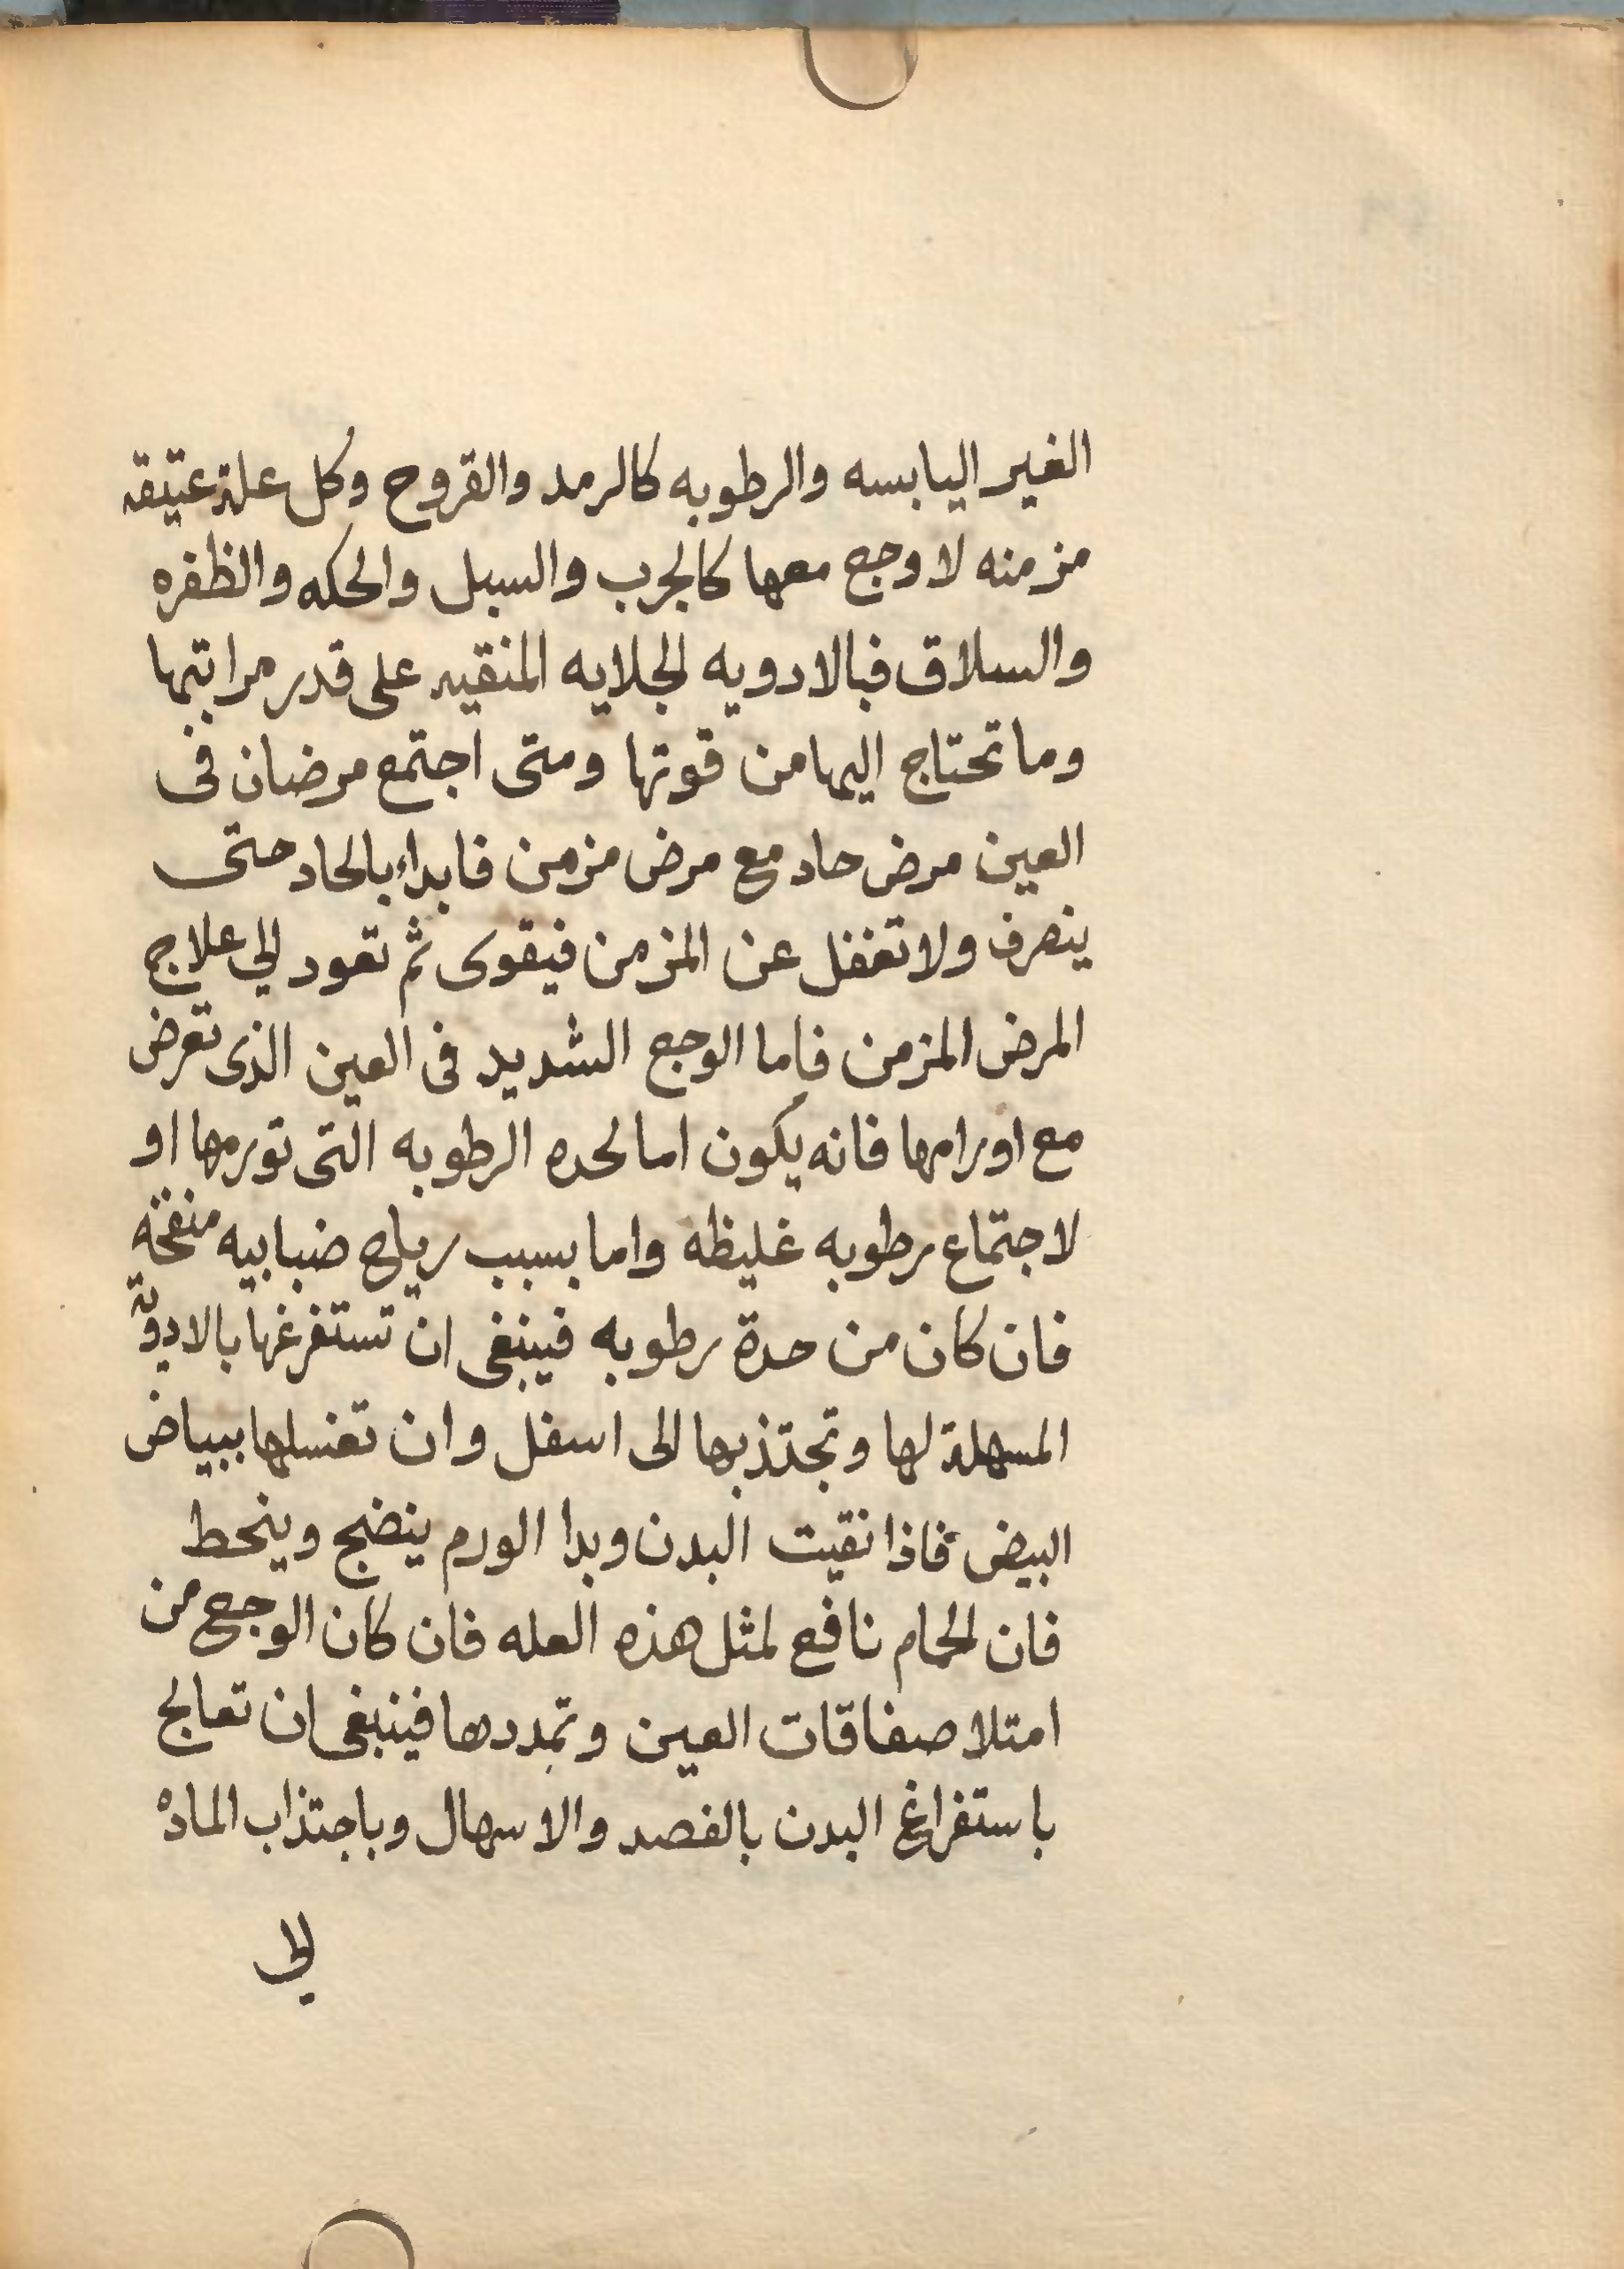 الغير اليابسه والرطوبه كالرمد والقروح وكل علة عتيقه
مزمنه لا وجع معها كالجرب والسبل والحكه والظفره
والسلاق فبالادويه الجلايه المنقيه على قدر مراتبها
وما تحتاج اليها من قوتها ومتى اجتمع مرضان فى
العين مرض حاد مع مرض مزمن فابداء بالحاد حتى
ينصرف ولا تغفل عن المزمن فيقوى ثم تعود الي علاج
المرض المزمن فاما الوجع الشديد فى العين الذى تعرض
مع اورامها فانه يكون اما لحده الرطوبه التى تورمها او
لاجتماع رطوبه غليظه واما بسبب رياح ضبابيه منفخه
فان كان من حدة رطوبه فينبغى ان تستفرغها بالادوية
المسهلة لها وتجتذبها الى اسفل وان تغسلها ببياض
البيض فاذا نقيت البدن وبدا الورم ينضج وينحط
فان الحمام نافع لمثل هذه العله فان كان الوجع من
امتلا صفاقات العين وتمددها فينبغى ان تعالج
باستفراغ البدن بالفصد والاسهال وباجتذاب الماده
الي